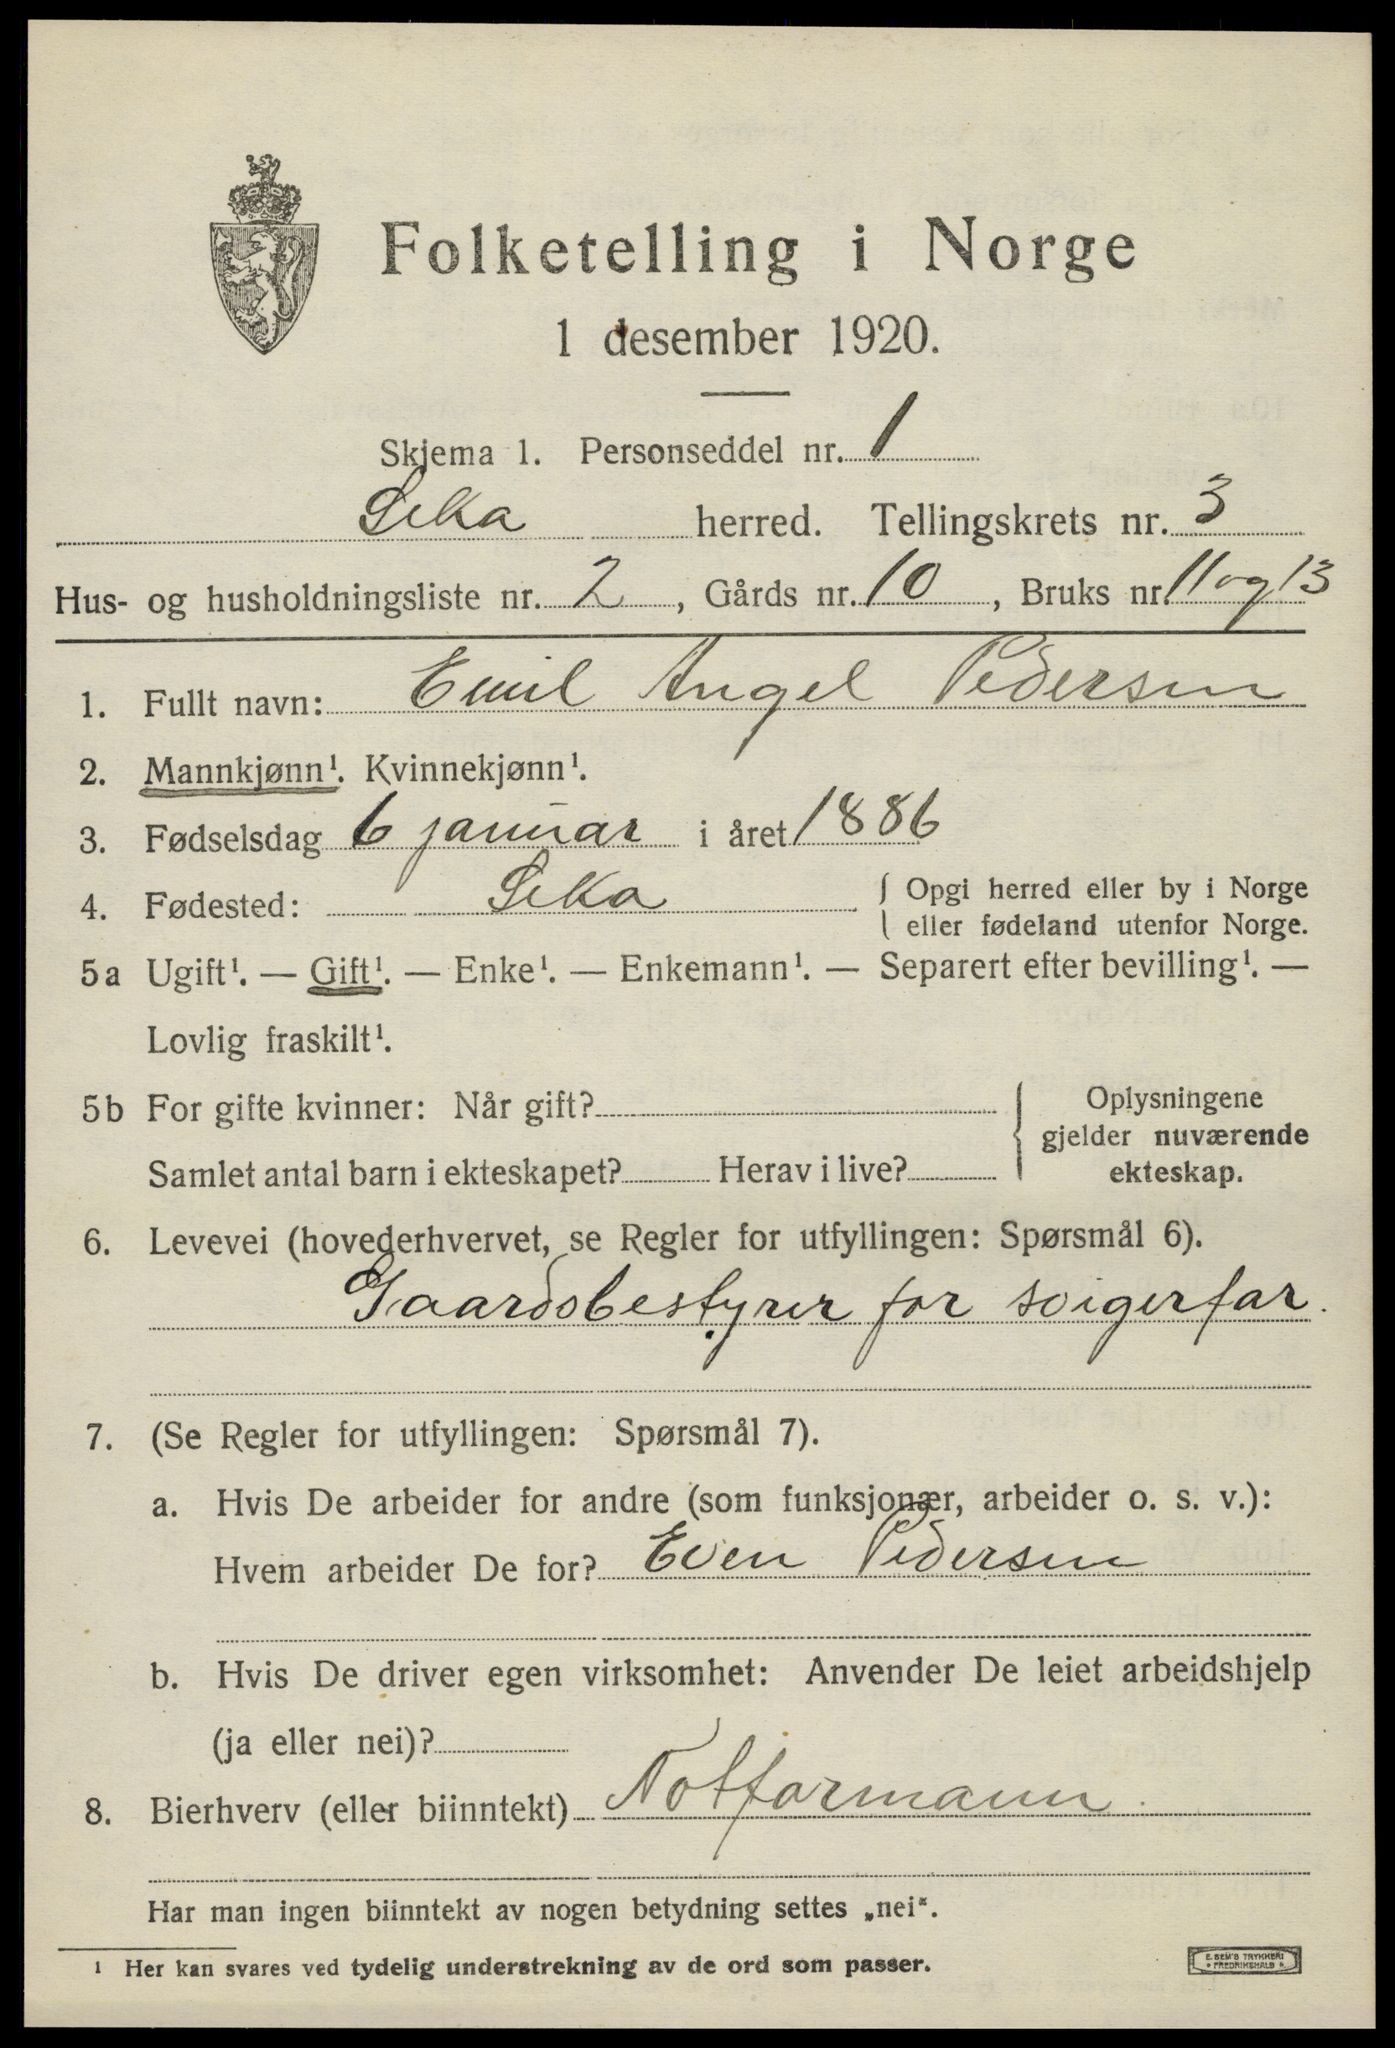 Folketelling i Norge
1 desember 1920.
Skjema 1. Personseddel nr. 1
Leka herred. Tellingskrets nr. 3
Hus- og husholdningsliste nr. 2, Gårds nr. 10, Bruks nr. 11 og 13
1. Fullt navn: Emil Angel Pedersen
2. Mannkjønn¹. Kvinnekjønn¹.
3. Fødselsdag 6 januar i året 1886
4. Fødested: Leka { Opgi herred eller by i Norge
eller fødeland utenfor Norge.
5a Ugift¹. — Gift¹. — Enke¹. — Enkemann¹. — Separert efter bevilling¹. —
Lovlig fraskilt¹.
5b For gifte kvinner: Når gift? { Oplysningene
gjelder nuværende
Samlet antal barn i ekteskapet? Herav i live? ekteskap.
6. Levevei (hovederhvervet, se Regler for utfyllingen: Spørsmål 6).
Gaardsbestyrer for svigerfar.
7. (Se Regler for utfyllingen: Spørsmål 7).
a. Hvis De arbeider for andre (som funksjonær, arbeider o. s. v.):
Hvem arbeider De for? Even Pedersen
b. Hvis De driver egen virksomhet: Anvender De leiet arbeidshjelp
(ja eller nei)?
8. Bierhverv (eller biinntekt) Notformann.
Har man ingen biinntekt av nogen betydning settes „nei".
¹ Her kan svares ved tydelig understrekning av de ord som passer.
E. SEM'S TRYKKERI
* FREDRIKSHALD *